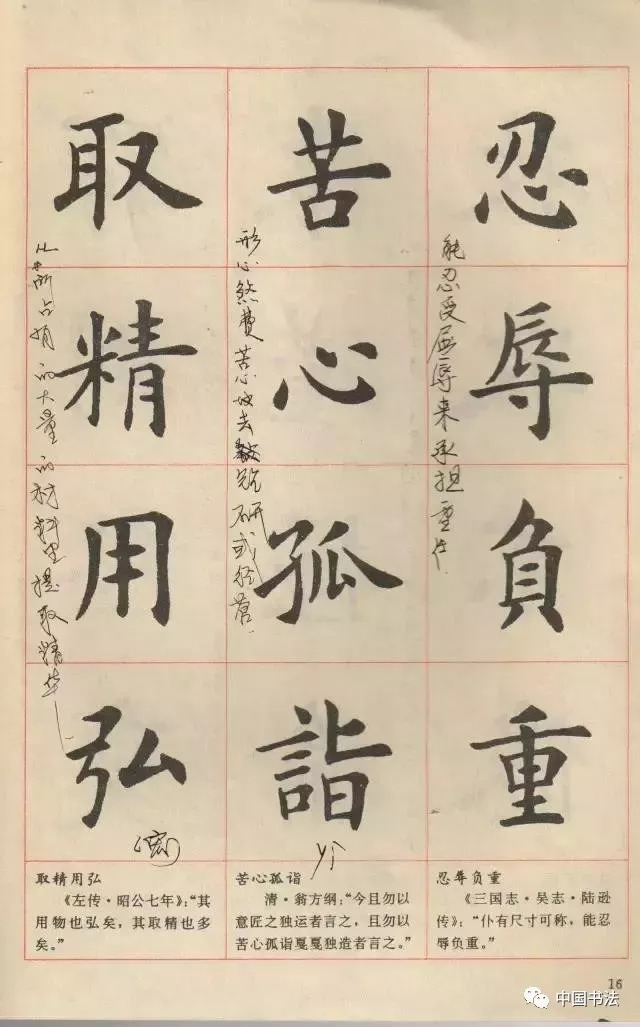 忍辱負重
能忍受屈辱来承担重任.
苦心孤詣
煞费苦心地去 研或经营.
yì
取精用弘
从所占有的大量的材料里提取精华
(宏)
忍辱负重
《三国志·吴志·陆逊
传》：“仆有尺寸可称，能忍
辱负重。”
苦心孤诣
清·翁方纲：“今且勿以
意匠之独运者言之，且勿以
苦心孤诣戛戛独造者言之。”
取精用弘
《左传·昭公七年》：“其
用物也弘矣，其取精也多
矣。”
16
中国书法